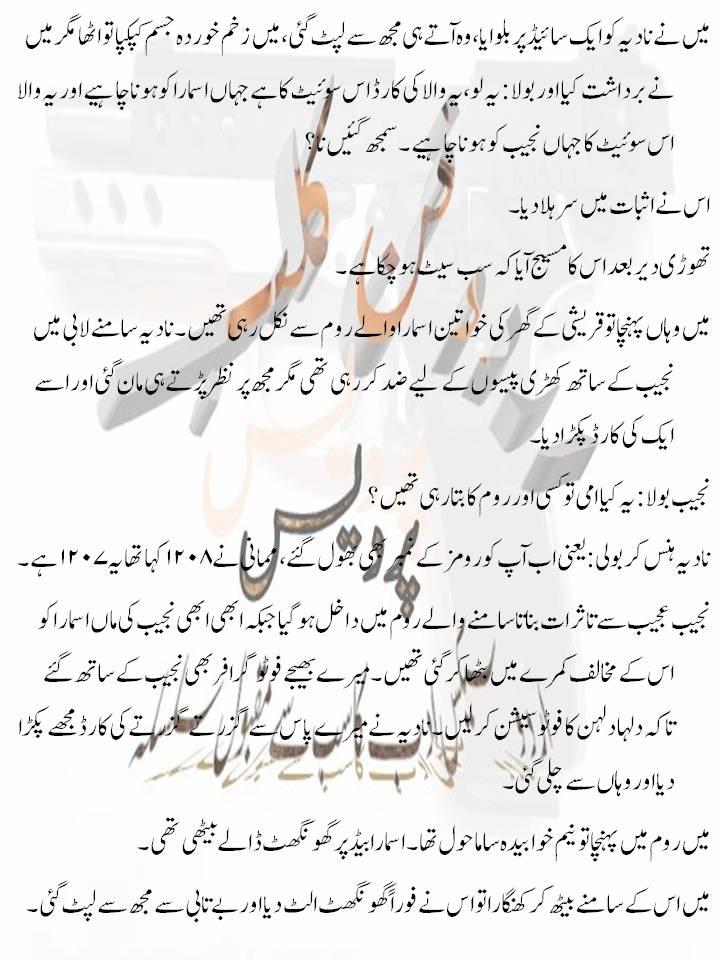 میں نے نادیہ کو ایک سائیڈ پر بلوایا، وہ آتے ہی مجھ سے لپٹ گئی، میں زخم خوردہ جسم کپکپا تو اٹھا مگر میں
نے برداشت کیا اور بولا: یہ لو، یہ والا کی کارڈ اس سوئیٹ کا ہے جہاں اسمارا کو ہونا چاہیے اور یہ والا
اس سوئیٹ کا جہاں نجیب کو ہونا چاہیے۔ سمجھ گئیں نا؟
اس نے اثبات میں سر ہلا دیا۔
تھوڑی دیر بعد اس کا مسیج آیا کہ سب سیٹ ہو چکا ہے۔
میں وہاں پہنچا تو قریشی کے گھر کی خواتین اسمارا والے روم سے نکل رہی تھیں۔ نادیہ سامنے لابی میں
نجیب کے ساتھ کھڑی پیسوں کے لیے ضد کر رہی تھی مگر مجھ پر نظر پڑتے ہی مان گئی اور اسے
ایک کی کارڈ پکڑا دیا۔
نجیب بولا: یہ کیا امی تو کسی اور روم کا بتا رہی تھیں؟
نادیہ ہنس کر بولی: یعنی اب آپ کو رومز کے نمبر بھی بھول گئے، ممانی نے ۱۲۰۸ کہا تھا یہ ۱۲۰۷ ہے۔
نجیب عجیب سے تاثرات بناتا سامنے والے روم میں داخل ہو گیا جبکہ ابھی ابھی نجیب کی ماں اسمارا کو
اس کے مخالف کمرے میں بٹھا کر گئی تھیں۔ میرے بھیجے فوٹو گرافر بھی نجیب کے ساتھ گئے
تاکہ دلہا دلہن کا فوٹو سیشن کر لیں۔ نادیہ نے میرے پاس سے گزرتے گزرتے کی کارڈ مجھے پکڑا
دیا اور وہاں سے چلی گئی۔
میں روم میں پہنچا تو نیم خوابیدہ سا ماحول تھا۔ اسمارا بیڈ پر گھونگھٹ ڈالے بیٹھی تھی۔
میں اس کے سامنے بیٹھ کر کھنگارا تو اس نے فوراً گھونگھٹ الٹ دیا اور بے تابی سے مجھ سے لپٹ گئی۔
پردیس